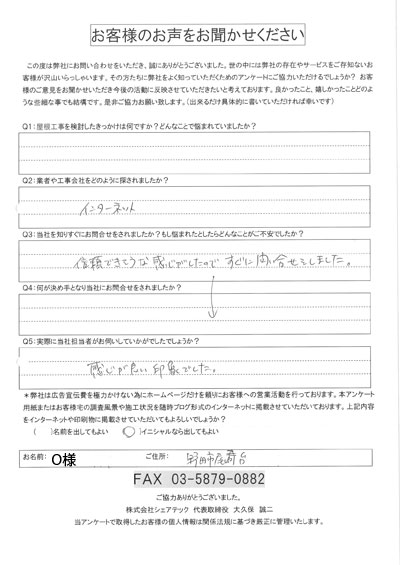 お客様のお声をお聞かせください
この度は弊社にお問い合わせをいただき、誠にありがとうございました。世の中には弊社の存在やサービスをご存知ないお
客様が沢山いらっしゃいます。その方たちに弊社をよく知っていただくためのアンケートにご協力いただけるでしょうか？ お客
様のご意見をお聞かせいただき今後の活動に反映させていただきたいと考えております。良かったこと、嬉しかったことどのよ
うな些細な事でも結構です。是非ご協力お願い致します。（出来るだけ具体的に書いていただければ幸いです）
Q1：屋根工事を検討したきっかけは何ですか？どんなことで悩まれていましたか？
Q2：業者や工事会社をどのように探されましたか？
インターネット
Q3：当社を知りすぐにお問合せをされましたか？もし悩まれたとしたらどんなことがご不安でしたか？
信頼できそうな感じがしたので すぐに問い合せをしました。
Q4：何が決め手となり当社にお問合せをされましたか？
Q5：実際に当社担当者がお伺いしていかがでしたでしょうか？
感じが良い印象でした。
＊弊社は広告宣伝費を極力かけない為にホームページだけを頼りにお客様への営業活動を行っております。本アンケート
用紙またはお客様宅の調査風景や施工状況を随時ブログ形式のインターネットに掲載させていただいております。上記内容
をインターネットや印刷物に掲載させていただいてもよろしいでしょうか？
（　）名前を出してもよい （○）イニシャルなら出してもよい
お名前： O様 ご住所： 野田市尾崎台
FAX 03-5879-0882
ご協力ありがとうございました。
株式会社シェアテック 代表取締役 大久保 誠二
当アンケートで取得したお客様の個人情報は関係法規に基づき厳正に管理いたします。